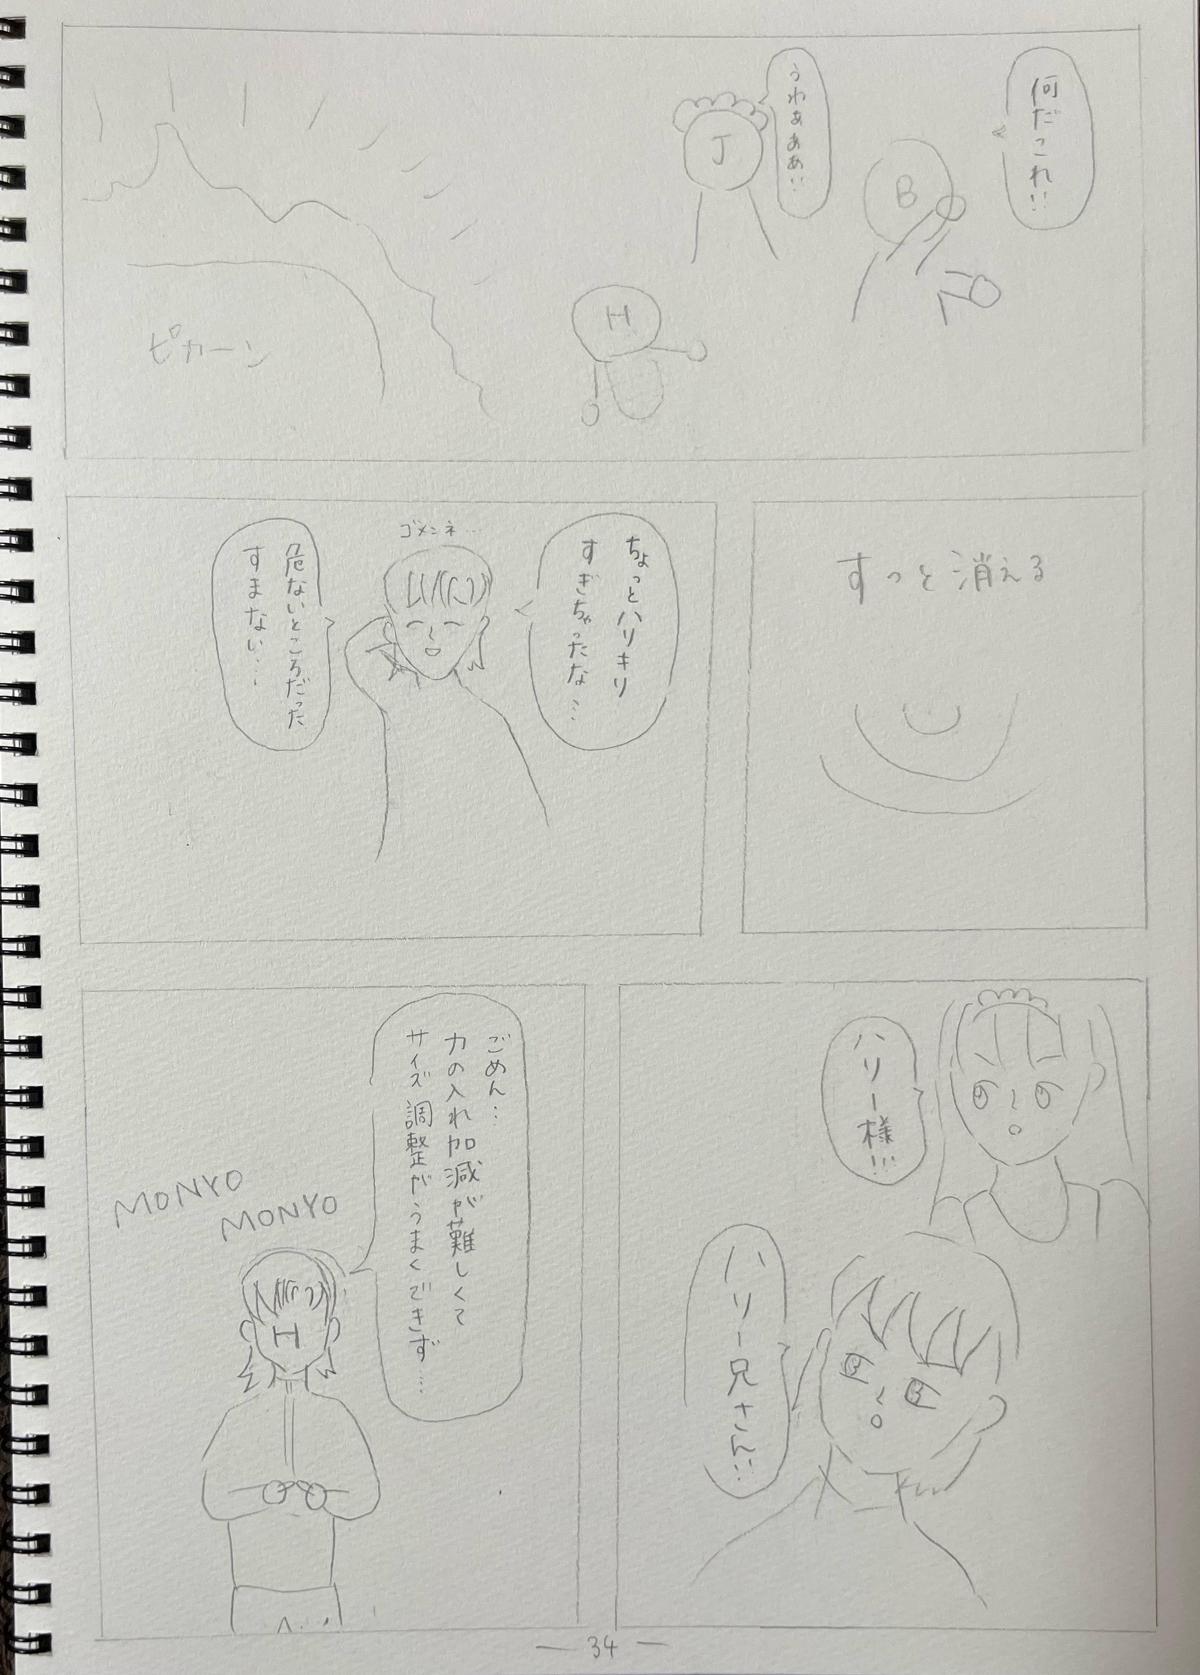 何だこれ!!
B
うわぁぁぁ!!
J
H
ピカーン
すっと消える
ちょっとハリキリ
すぎちゃったな…
ゴメンネ…
危ないところだった
すまない…
ハリー様!!!
ハリー兄さん!!
ごめん…
力の入れ加減が難しくて
サイズ調整がうまくできず…
MONYO
MONYO
H
— 34 —